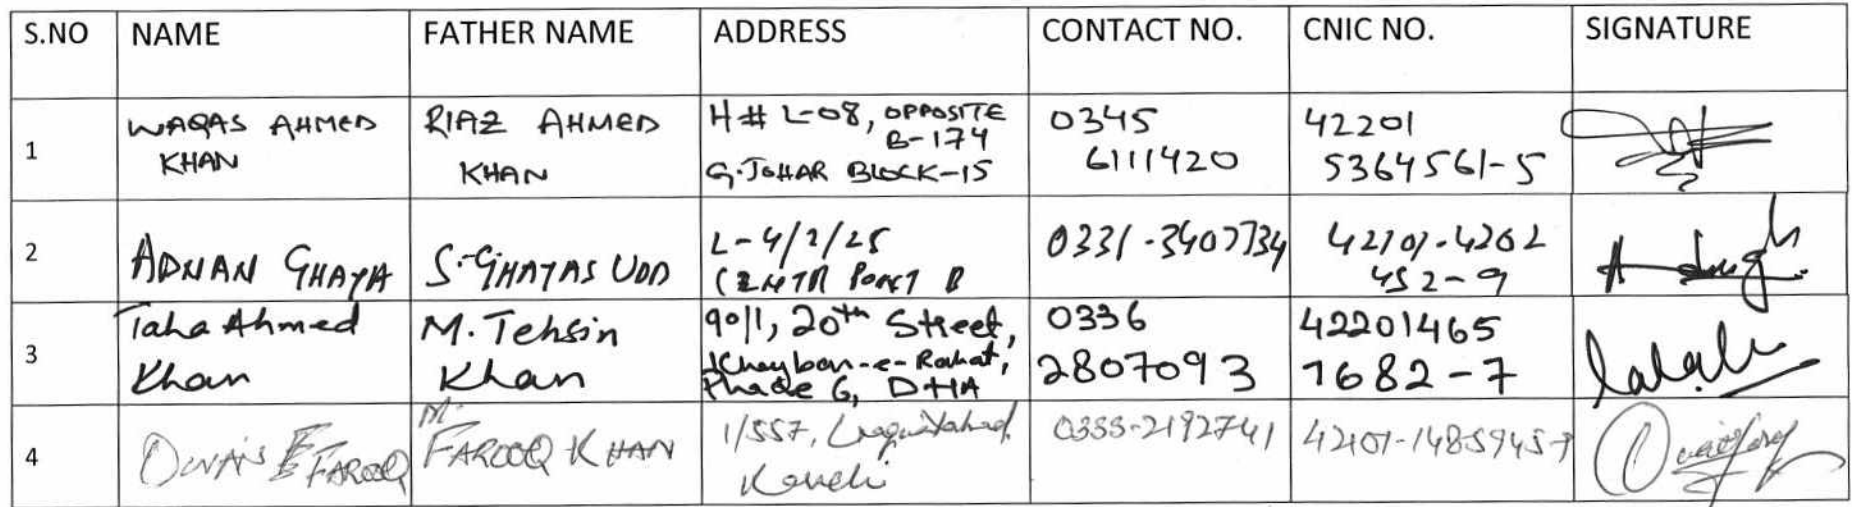 S.NO NAME FATHER NAME ADDRESS CONTACT NO. CNIC NO. SIGNATURE
1
WAQAS AHMED
KHAN
RIAZ AHMED
KHAN
H# L-08, OPPOSITE
B-174
G.JOHAR BLOCK-15
0345
6111420
42201
5364561-5
2
ADNAN GHAYA
S.GHAYAS UDD
L-4/2/25
0331-3407734
452-9
3
Taha Ahmed
Khan
M. Tehsin
Khan
90/1, 20th Street,
Khayban-e-Rahat,
Phase 6, DHA
0336
2807093
42201465
1682-7
4
OWAIS FAROOQ
M.
FAROOQ KHAN
1/557, Liaquatabad
Karachi